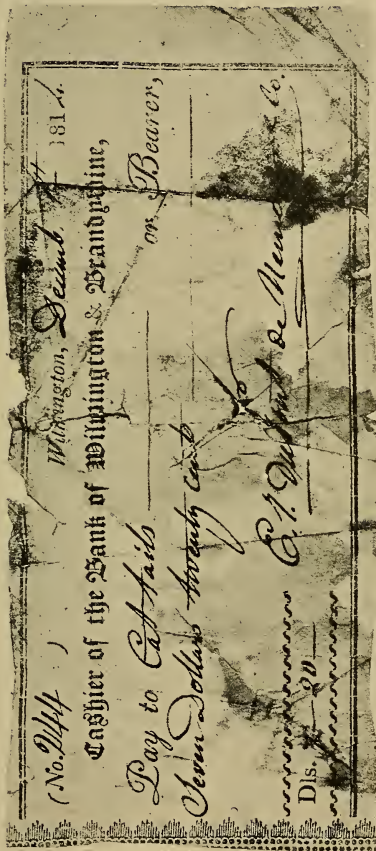 (No. 244 ) Wilmington, Decemb 181
Cashier of the Bank of Wilmington & Brandywine,
Pay to Cattails or Bearer,
Seven Dollars twenty cent
E. I. DuPont de Nemo & Co.
Dls. 20